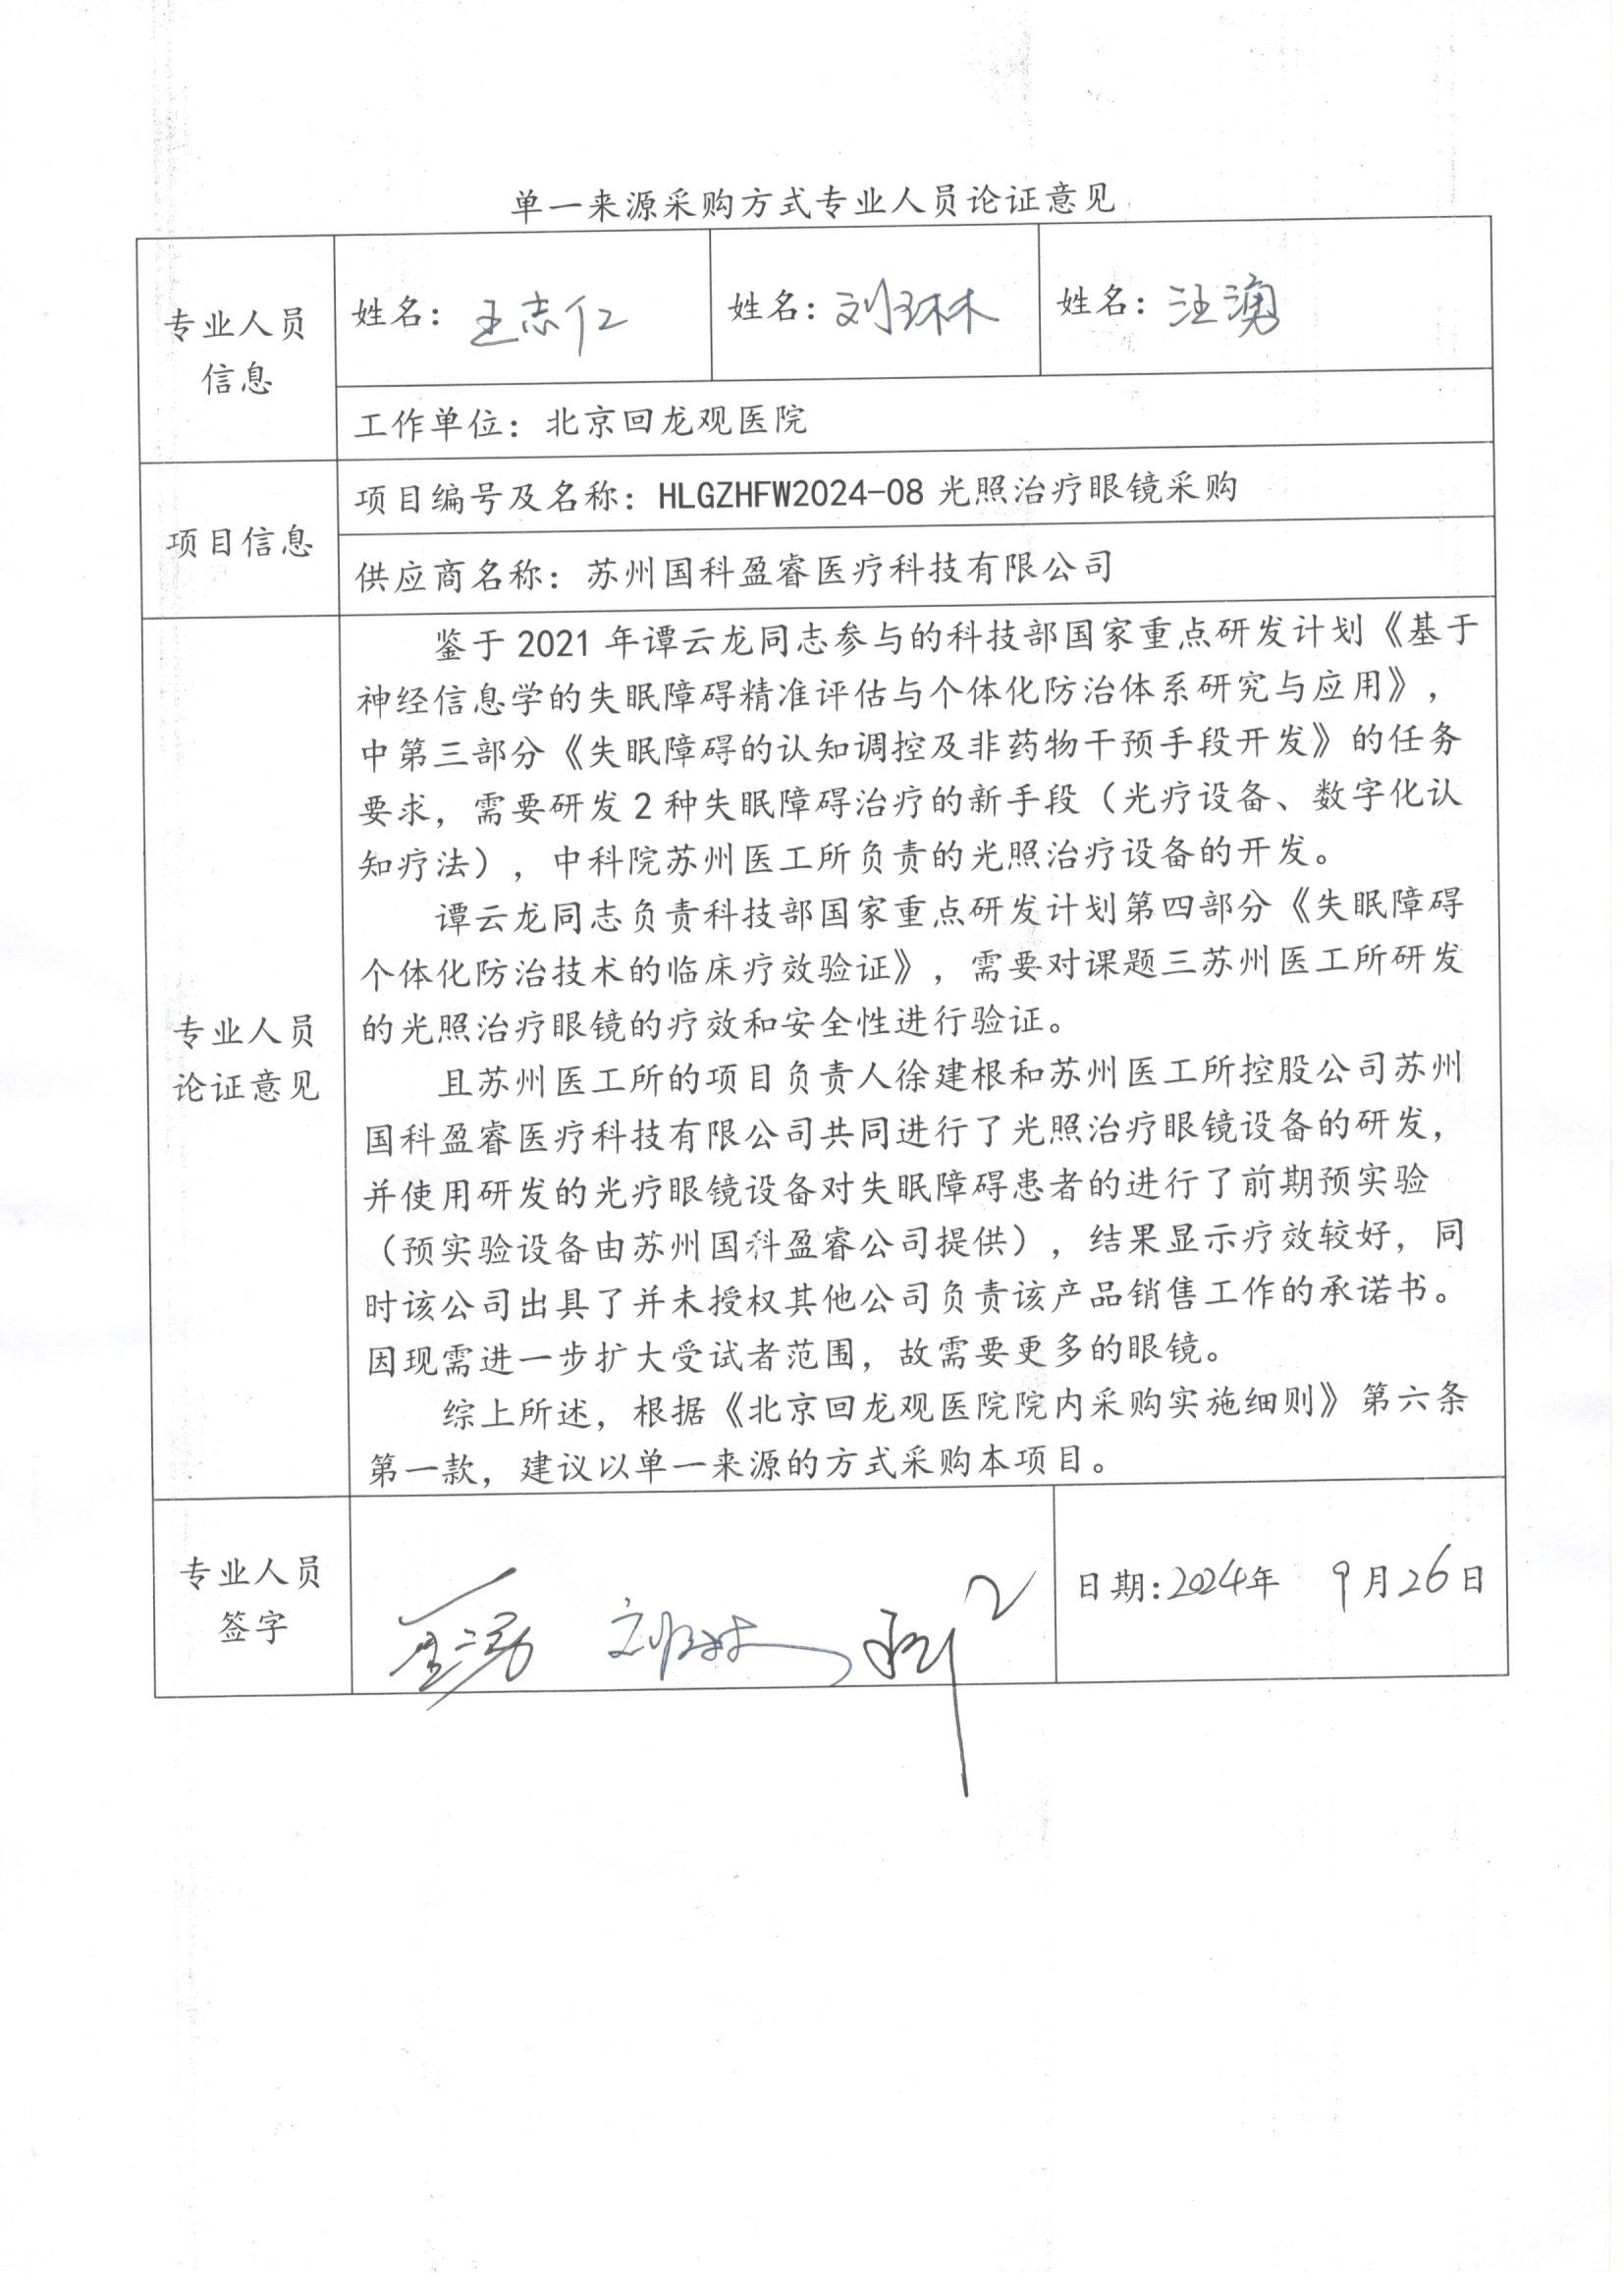 单一来源采购方式专业人员论证意见
专业人员
信息
姓名：王志仁
姓名：刘琳林
姓名：汪湧
工作单位：北京回龙观医院
项目信息
项目编号及名称：HLGZHFW2024-08光照治疗眼镜采购
供应商名称：苏州国科盈睿医疗科技有限公司
专业人员
论证意见
鉴于2021年谭云龙同志参与的科技部国家重点研发计划《基于
神经信息学的失眠障碍精准评估与个体化防治体系研究与应用》，
中第三部分《失眠障碍的认知调控及非药物干预手段开发》的任务
要求，需要研发2种失眠障碍治疗的新手段（光疗设备、数字化认
知疗法），中科院苏州医工所负责的光照治疗设备的开发。
谭云龙同志负责科技部国家重点研发计划第四部分《失眠障碍
个体化防治技术的临床疗效验证》，需要对课题三苏州医工所研发
的光照治疗眼镜的疗效和安全性进行验证。
且苏州医工所的项目负责人徐建根和苏州医工所控股公司苏州
国科盈睿医疗科技有限公司共同进行了光照治疗眼镜设备的研发，
并使用研发的光疗眼镜设备对失眠障碍患者的进行了前期预实验
（预实验设备由苏州国科盈睿公司提供），结果显示疗效较好，同
时该公司出具了并未授权其他公司负责该产品销售工作的承诺书。
因现需进一步扩大受试者范围，故需要更多的眼镜。
综上所述，根据《北京回龙观医院院内采购实施细则》第六条
第一款，建议以单一来源的方式采购本项目。
专业人员
签字
日期：2024年 9月26日